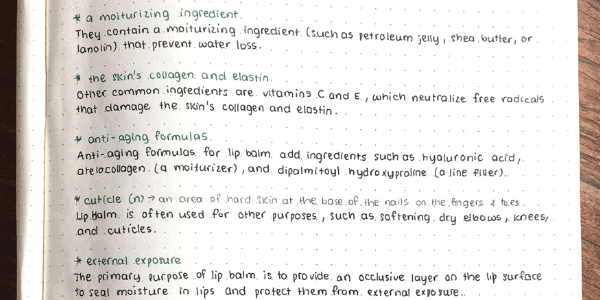 * a moiturizing ingredient.
They contain a moiturizing ingredient (such as petroleum jelly, shea butter, or
lanolin) that prevent water loss.
* the skin's collagen and elastin.
Other common ingredients are vitamins C and E, which neutralize free radicals
that damage the skin's collagen and elastin.
* anti-aging formulas.
Anti-aging formulas for lip balm add ingredients such as hyaluronic acid,
atelocollagen (a moiturizer), and dipalmitoyl hydroxyproline (a line filler).
* cuticle (n) → an area of hard skin at the base of the nails on the fingers & toes.
Lip Balm is often used for other purposes, such as softening dry elbows, knees,
and cuticles.
* external exposure
The primary purpose of lip balm is to provide an occlusive layer on the lip surface
to seal moisture in lips and protect them from external exposure.